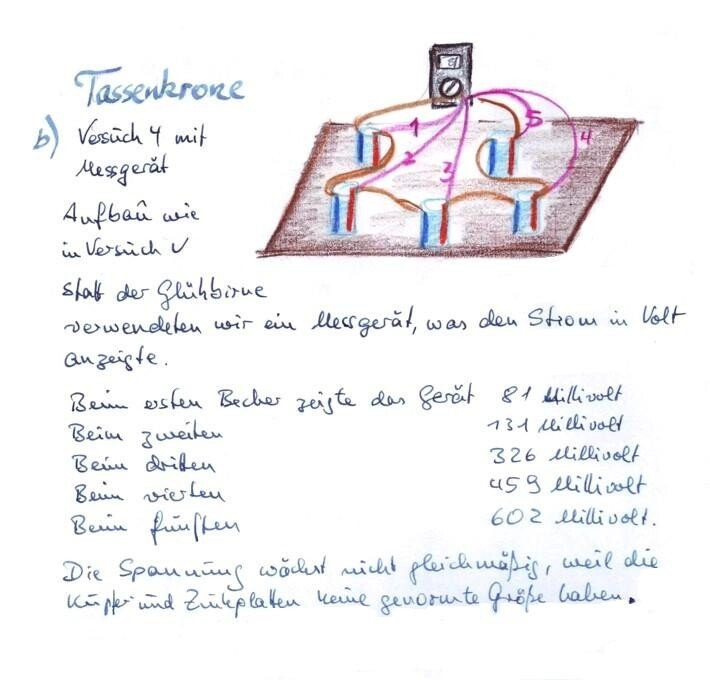 Tassenkrone
b) Versuch 4 mit
Messgerät
Aufbau wie
in Versuch
statt der Glühbirne
verwendeten wir ein Messgerät, was den Strom in Volt
anzeigte.
1
2
3
4
5
Beim ersten Becher zeigte das Gerät 81 Millivolt
Beim zweiten 131 Millivolt
Beim dritten 326 Millivolt
Beim vierten 459 Millivolt
Beim fünften 602 Millivolt.
Die Spannung wächst nicht gleichmäßig, weil die
Kupfer und Zinkplatten keine genormte Größe haben.